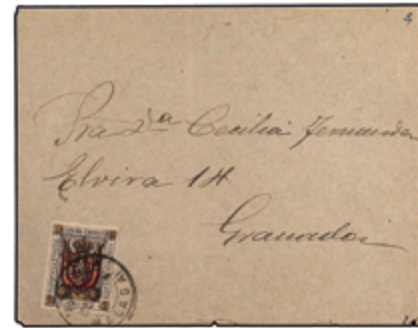 Sra Dª Cecilia Fernandez
Elvira 14
Granada